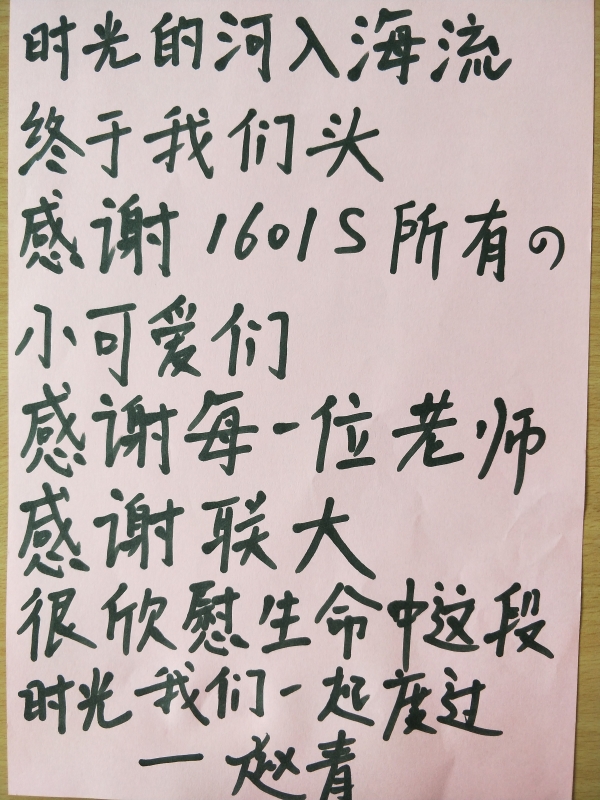 时光的河入海流
终于我们头
感谢1601S所有の
小可爱们
感谢每一位老师
感谢联大
很欣慰生命中这段
时光我们一起度过
一赵青